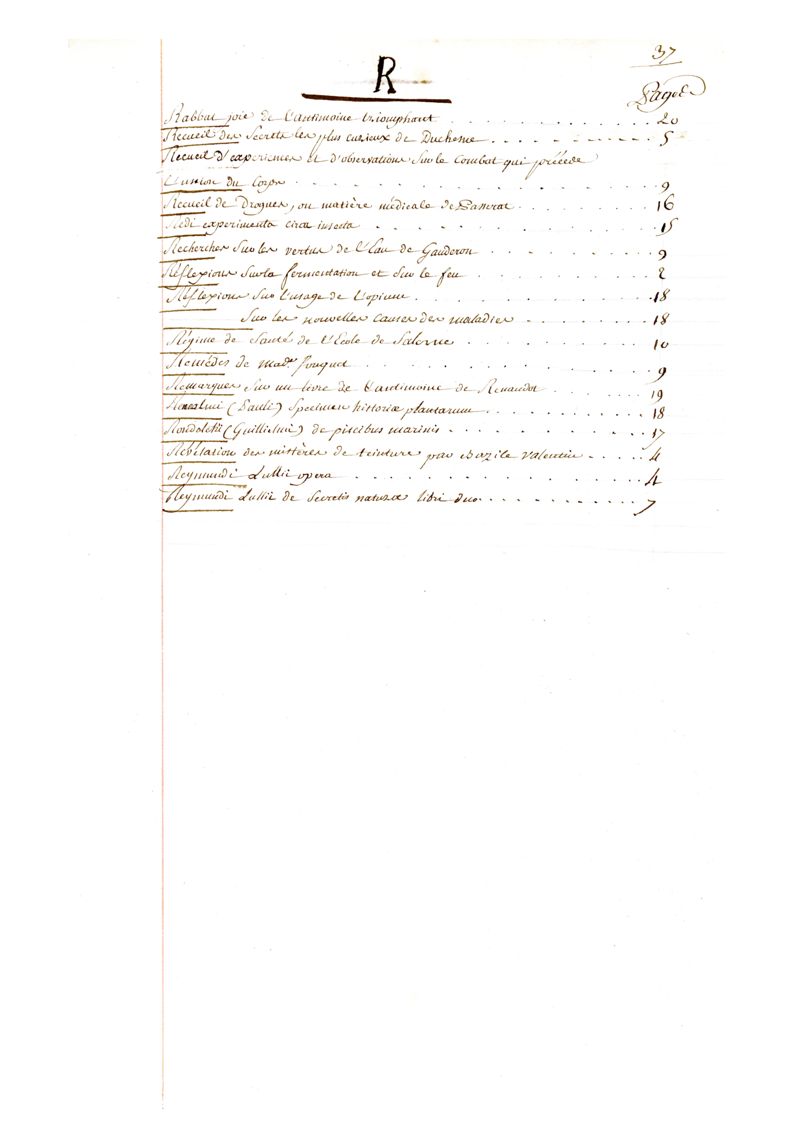 37
R
Pages
Rabbat joie de l'antimoine triomphant 20
Recueil des Secrets les plus curieux de Duchesne 5
Recueil d'experiences et d'observations Sur le Combat qui précede
L'union du Corps 9
Recueil de Drogues, ou matière médicale de Passerat 16
Redi experimenta circa insecta 15
Recherches Sur les vertus de l'Eau de Gauderon 9
Réflexions Sur la fermentation et Sur le feu 2
Réflexions Sur l'usage de l'opium 18
Sur les nouvelles causes des maladies 18
Régime de Santé de l'Ecole de Salerne 10
Remèdes de mad.e fouquet 9
Remarques Sur un livre de l'antimoine de Renaudot 19
Renealmi (Pauli) Specimen historiæ plantarum 18
Rondoletii (Guillielmi) de piscibus marinis 17
Révélation des mistères de teinture par Bazile Valentin 4
Reymundi Lullii opera 4
Reymundi Lullii de Secretis naturæ libri duo 7